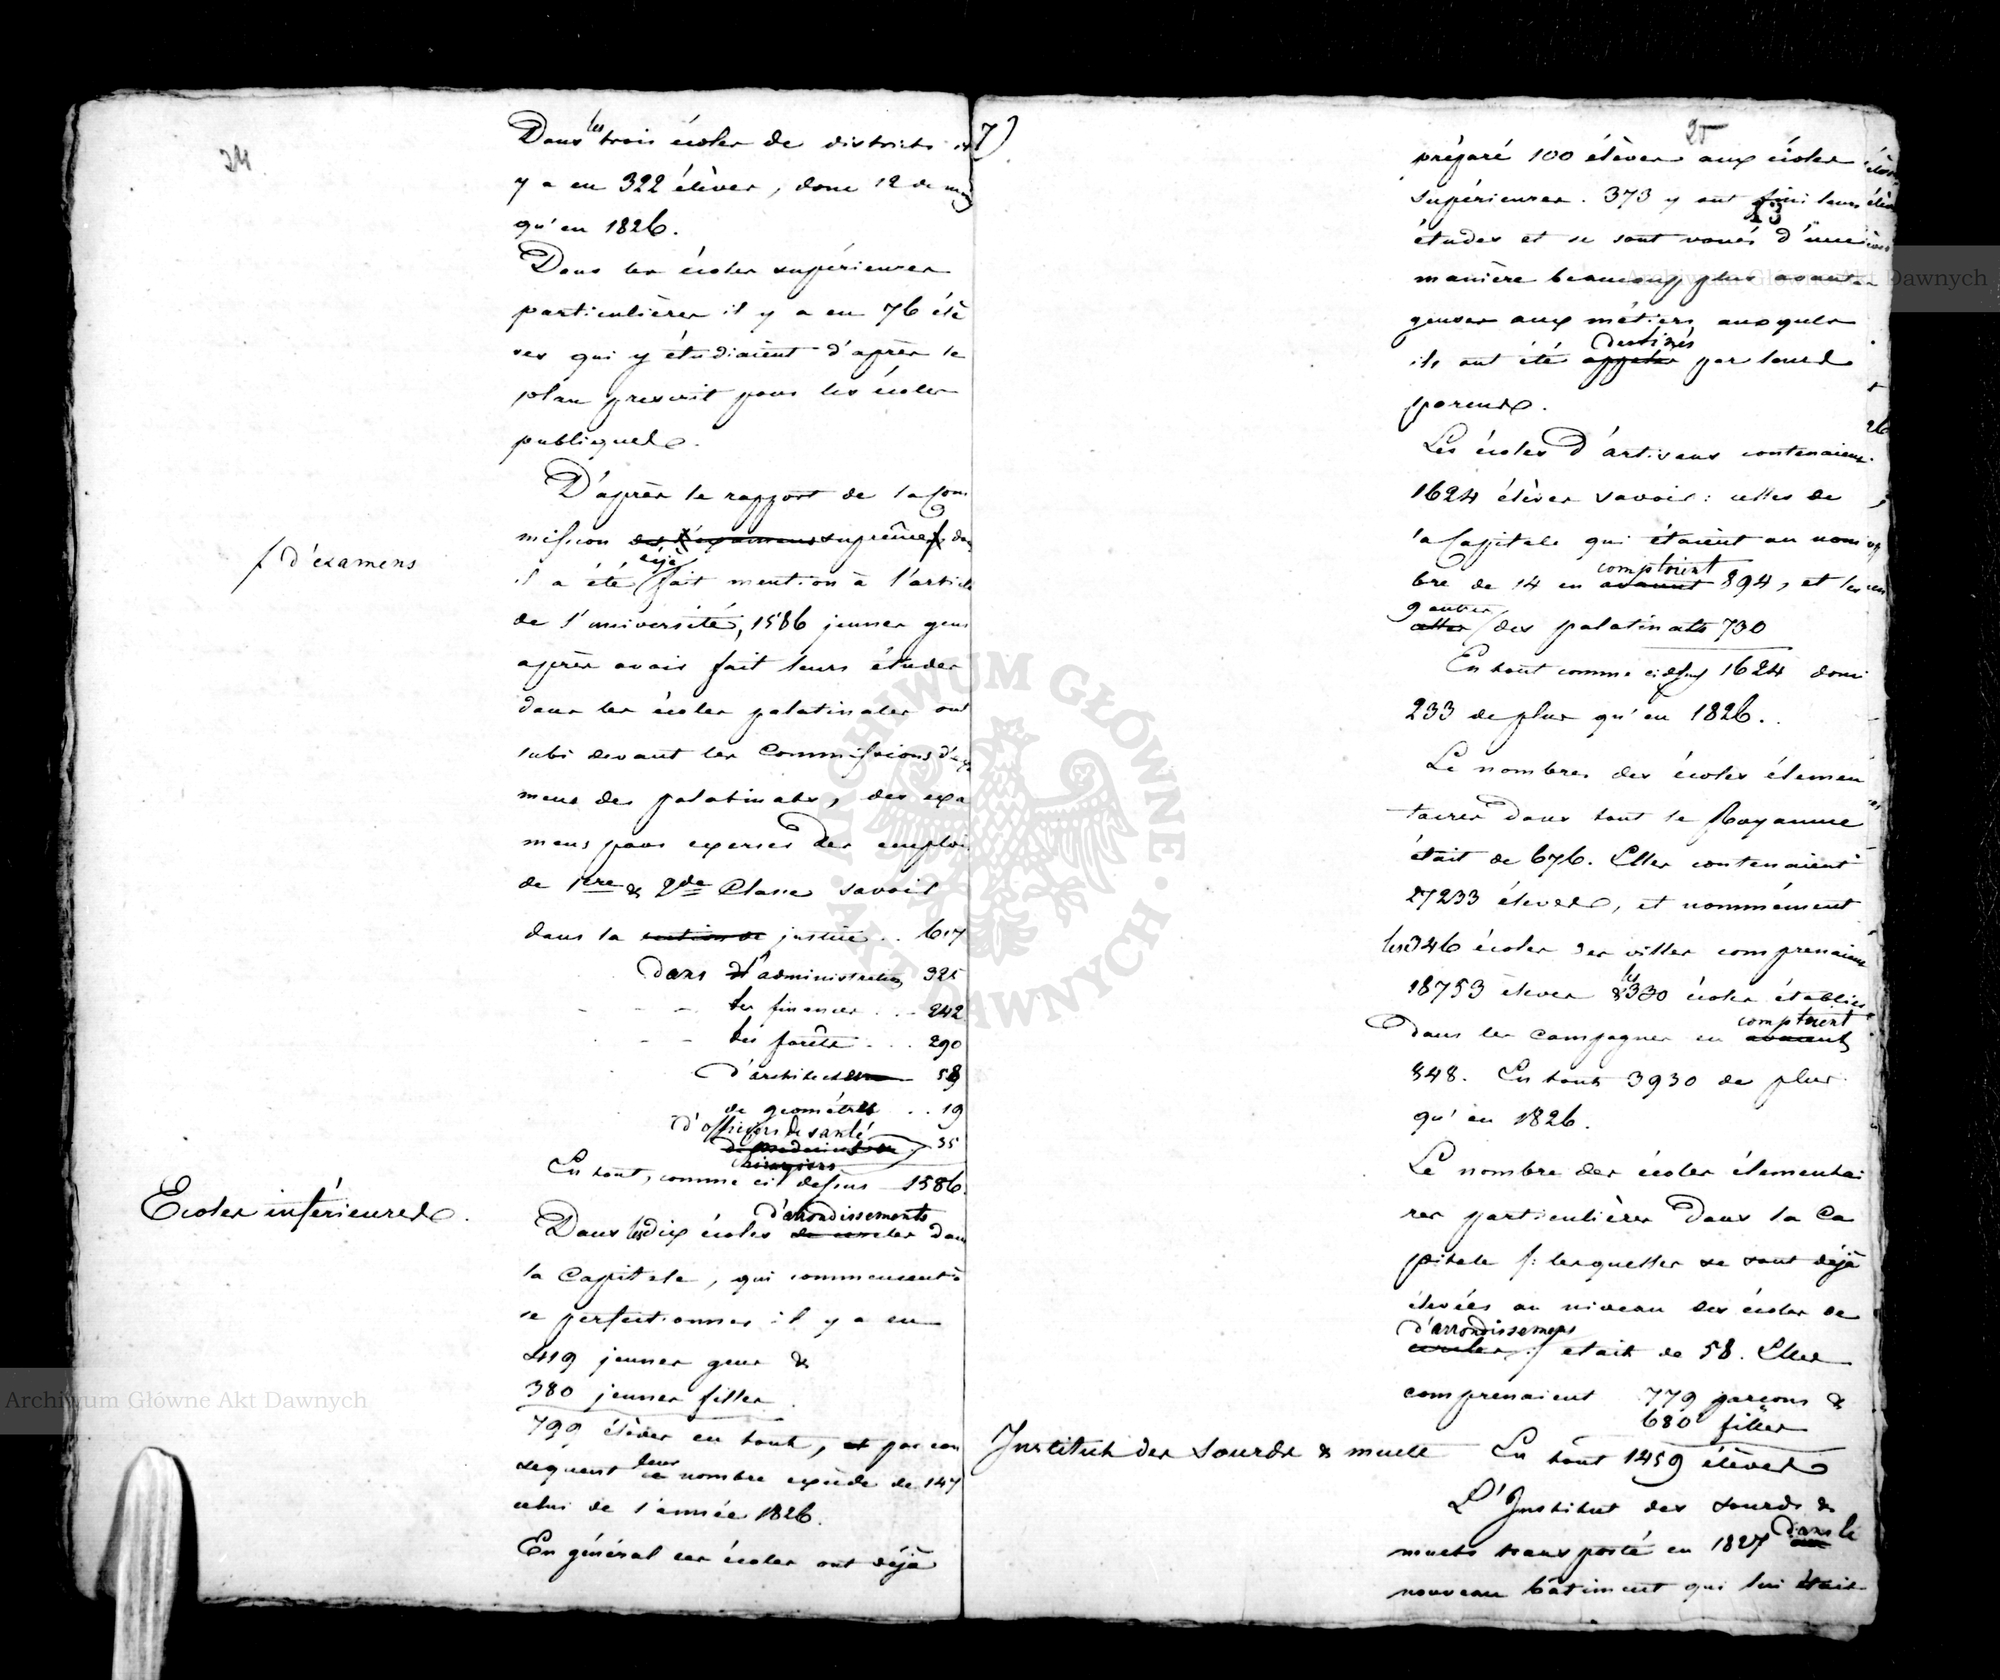 24
Dans les trois écoles de districts il
y a eu 322 élèves, donc 12 de moins
qu'en 1826.
Dans les écoles supérieures
particulières il y a eu 76 élè
ves qui y étudiaient d'après le
plan prescrit pour les écoles
publiques.
D'après le rapport de la Com
mission suprême dont
d'examens
il a été déjà fait mention à l'article
de l'université, 1586 jeunes gens
après avoir fait leurs études
dans les écoles palatinales ont
subi devant les Commissions d'exa
mens des palatinats, des exa
mens pour exercer des emplois
de 1ère & 2de Classe savoir
dans la section de justice .. 617
Dans l'administration 325
- - - les finances . . - 242
- - les forêts . . . 290
d'architecture 58
de géomètres . . 19
d'officiers de santé
de médecins et de 35
chirurgiens
En tout, comme ci dessus 1586.
Ecoles inférieures.
d'arrondissements
Dans les dix écoles de cercles dans
la Capitale, qui commencent à
se perfectionner il y a eu
419 jeunes gens &
380 jeunes filles.
799 élèves en tout, et par con
séquent leur nombre excède de 147
celui de l'année 1826.
En général ces écoles ont déjà
7)
25
préparé 100 élèves aux écoles
supérieures. 373 y ont fini leurs
13
études et se sont voués d'une
manière beaucoup plus avanta
geuse aux métiers auxquels
destinés
ils ont été appelés par leurs
parens.
Les écoles d'artisans contenaient
1624 élèves savoir: celles de
la Capitale qui étaient au nom
comptoient
bre de 14 en avaient 894, et les
9 autres
celles des palatinats 730
En tout comme ci dessus 1624 donc
233 de plus qu'en 1826.
Le nombres des écoles élémen
taires dans tout le Royaume
était de 676. Elles contenaient
27233 élèves, et nommément
les 346 écoles des villes comprenaient
18753 élèves & les 330 écoles établies
comptoient
dans les campagnes en avaient
848. En tout 3930 de plus
qu'en 1826.
Le nombre des écoles élémentai
res particulières dans la Ca
pitale /: lesquelles se sont déjà
élevées au niveau des écoles de
d'arrondissemens
cercles :/ etait de 58. Elles
comprenaient 779 garçons &
680 filles
En tout 1459 élèves
Institut des sourds & muets
L'Institut des sourds &
muets transporté en 1827 dans le
nouveau bâtiment qui lui était
Archiwum Główne Akt Dawnych
Archiwum Główne Akt Dawnych
ARCHIWUM GŁÓWNE AKT DAWNYCH